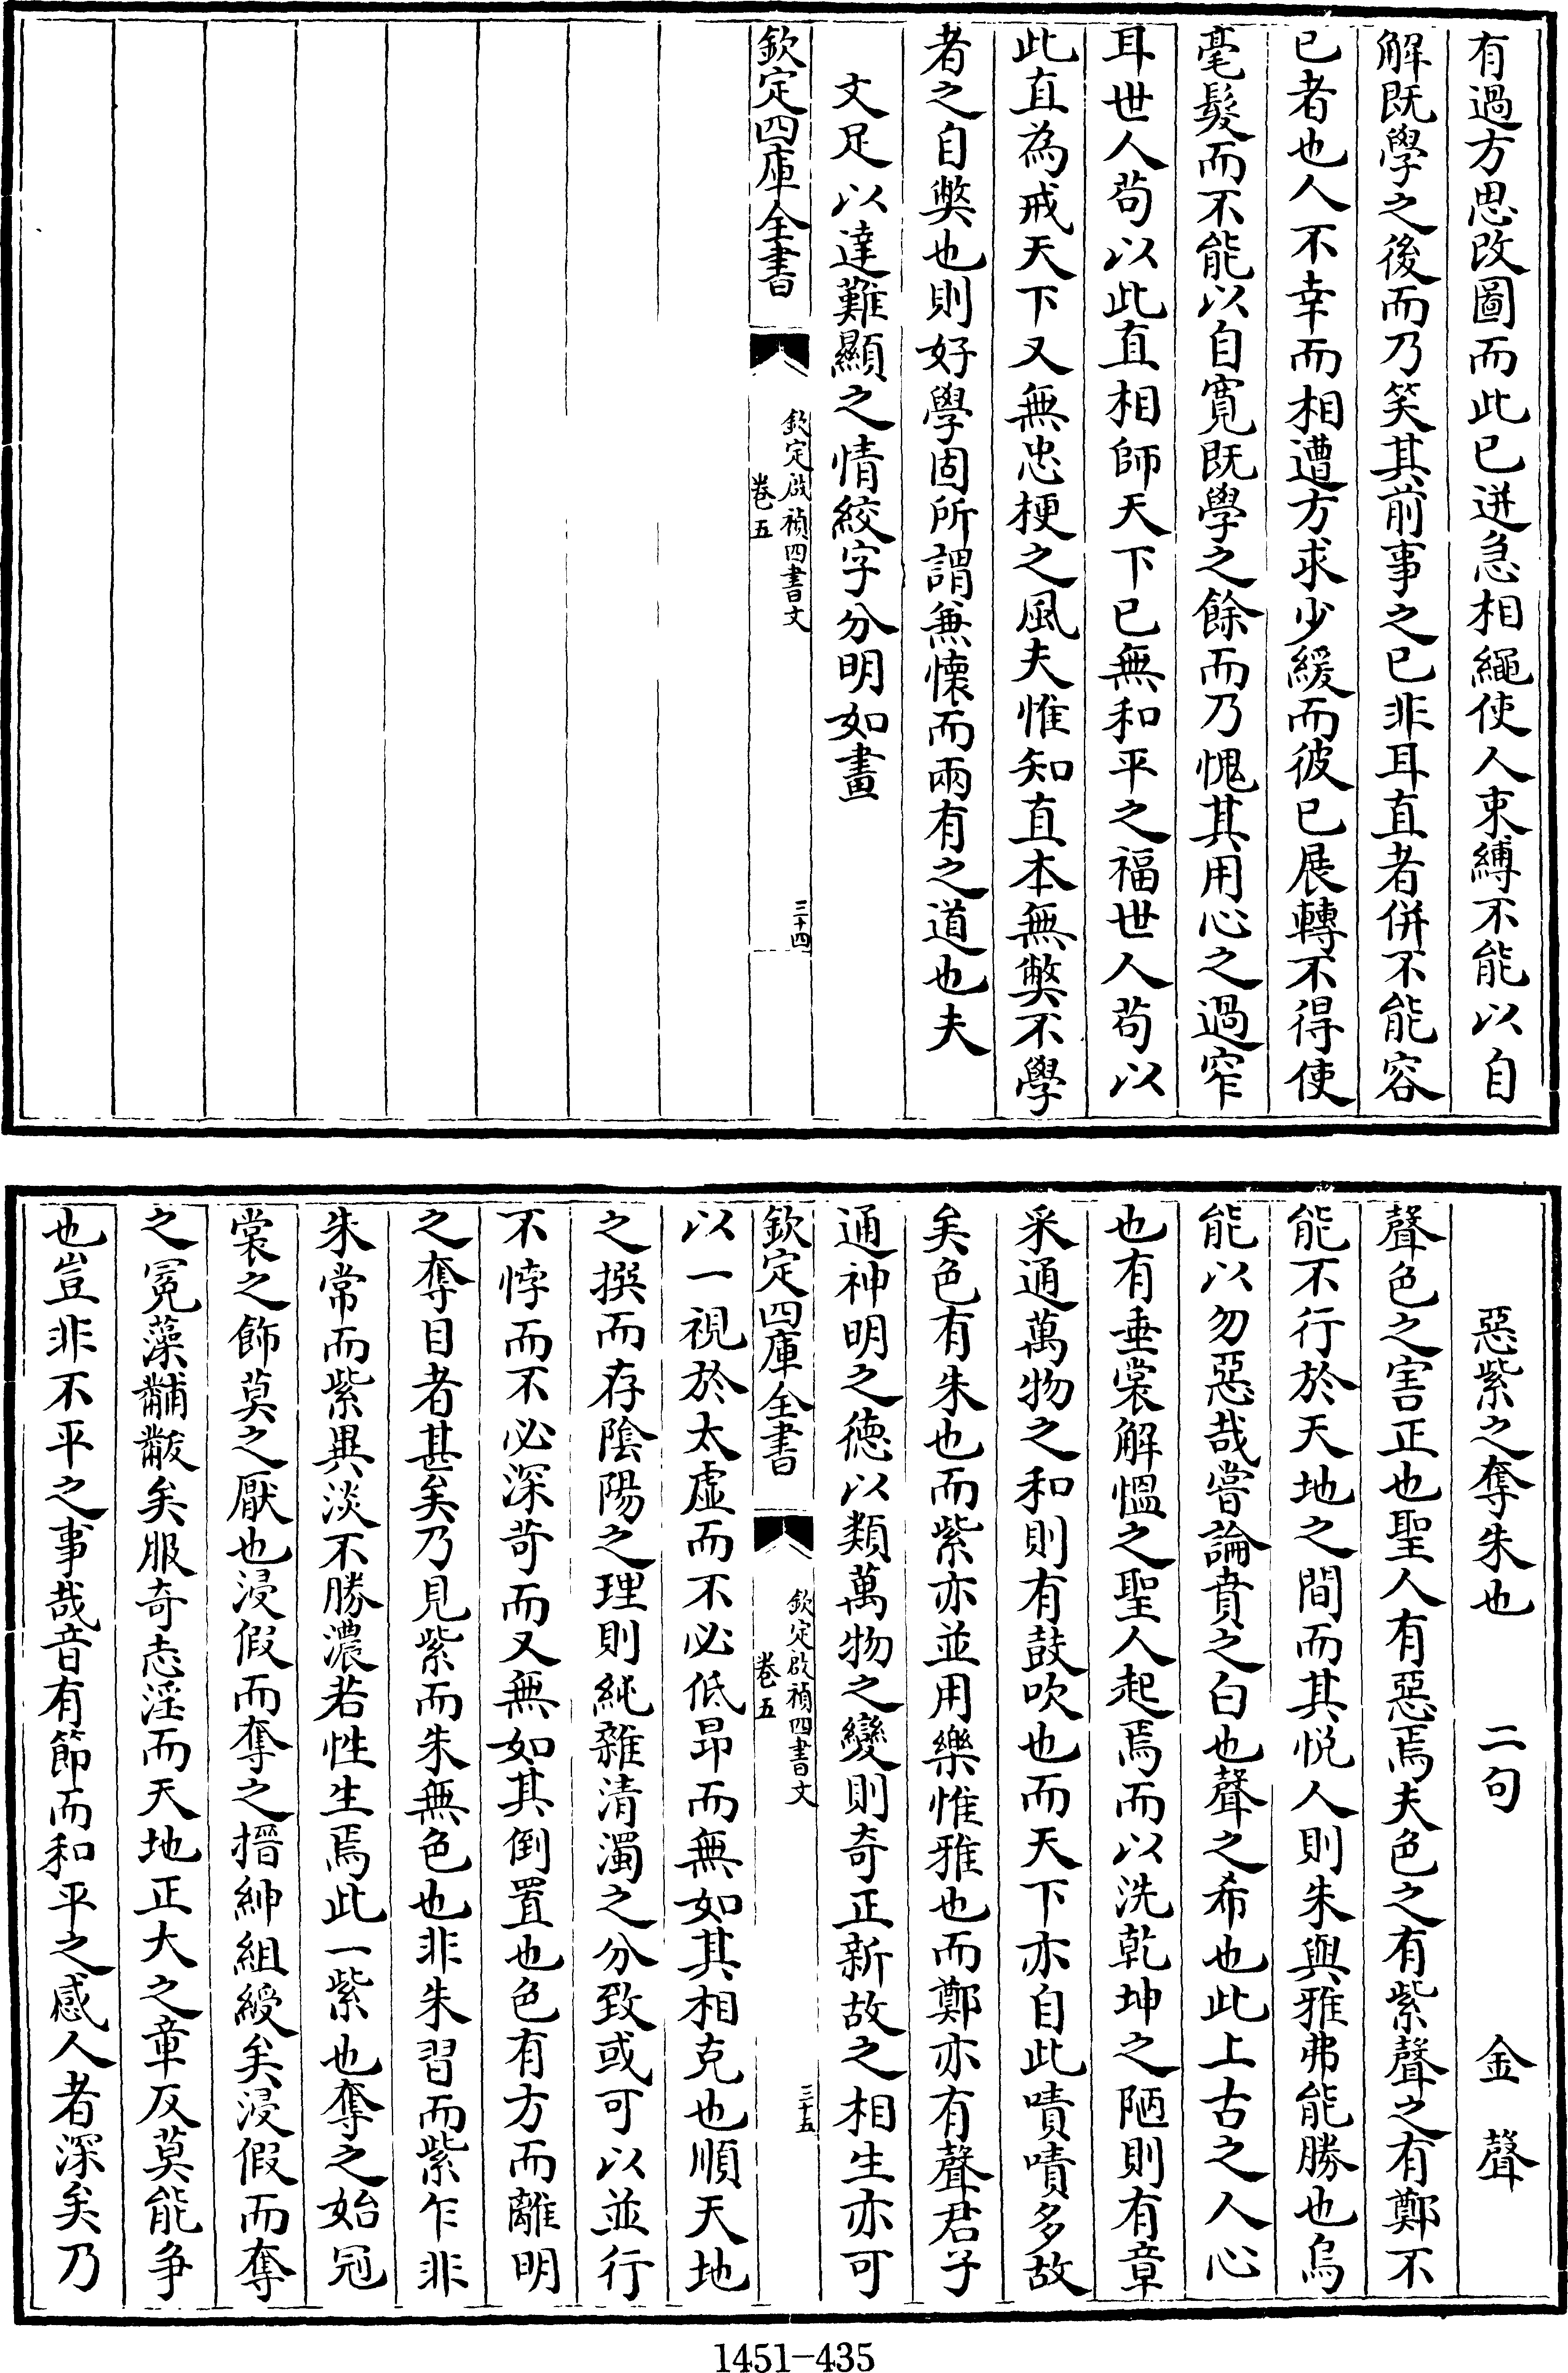 有過方思改圖而此已迸急相繩使人束縛不能以自
解既學之後而乃笑其前事之已非耳直者併不能容
已者也人不幸而相遭方求少緩而彼已展轉不得使
毫髮而不能以自寛既學之餘而乃愧其用心之過窄
耳世人苟以此直相師天下已無和平之福世人苟以
此直為戒天下又無忠梗之風夫惟知直本無獘不學
者之自獘也則好學固所謂兼懷而兩有之道也夫
文足以達難顯之情絞字分明如畫
欽定四庫全書
欽定啟禎四書文
卷五
三十四
惡紫之奪朱也 二句 金聲
聲色之害正也聖人有惡焉夫色之有紫聲之有鄭不
能不行於天地之間而其悦人則朱與雅弗能勝也烏
能以勿惡哉嘗論賁之白也聲之希也此上古之人心
也有垂裳解愠之聖人起焉而以洗乾坤之陋則有章
采通萬物之和則有鼓吹也而天下亦自此嘖嘖多故
矣色有朱也而紫亦並用樂惟雅也而鄭亦有聲君子
通神明之德以類萬物之變則奇正新故之相生亦可
欽定四庫全書
欽定啟禎四書文
卷五
三十五
以一視於太虛而不必低昂而無如其相克也順天地
之撰而存陰陽之理則純雜清濁之分致或可以並行
不悖而不必深苛而又無如其倒置也色有方而離明
之奪目者甚矣乃見紫而朱無色也非朱習而紫乍非
朱常而紫異淡不勝濃若性生焉此一紫也奪之始冠
裳之飾莫之厭也浸假而奪之搢紳組綬矣浸假而奪
之冕藻黼黻矣服奇志淫而天地正大之章反莫能争
也豈非不平之事哉音有節而和平之感人者深矣乃
1451-435